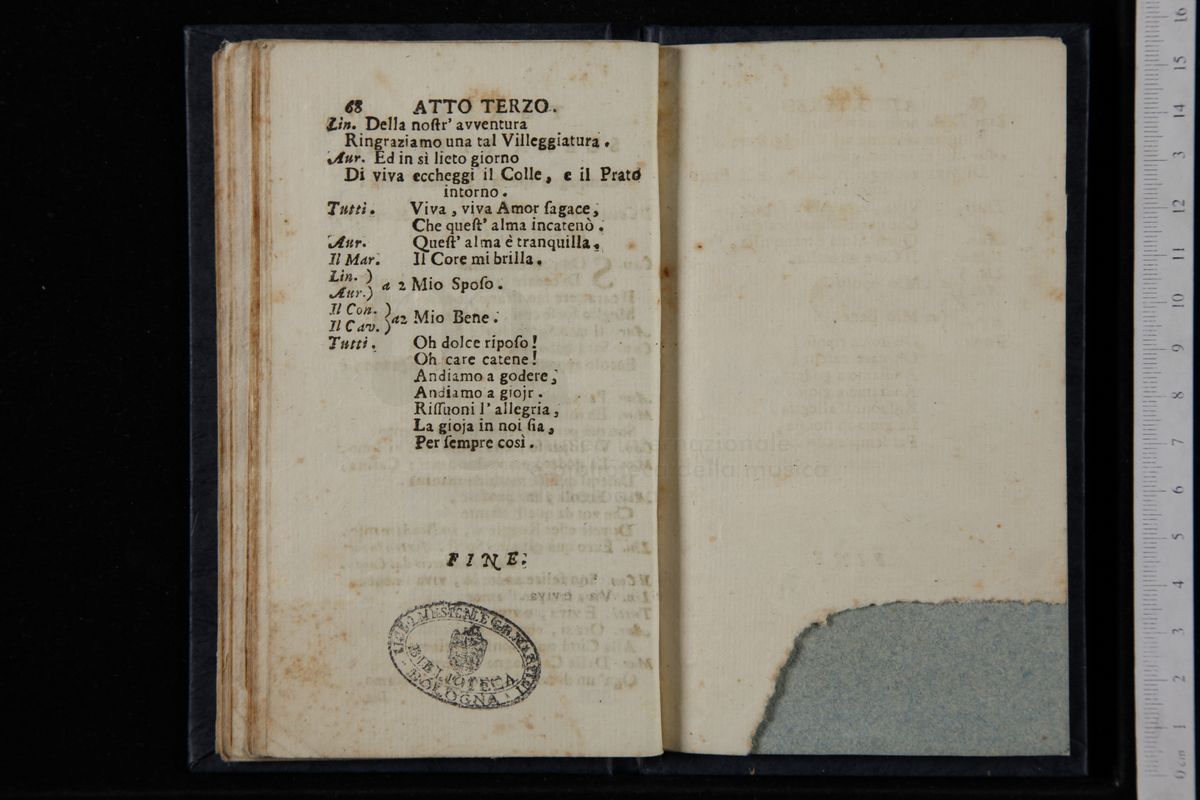 68 ATTO TERZO.
Lin. Della noſtr' avventura
Ringraziamo una tal Villeggiatura.
Aur. Ed in sì lieto giorno
Di viva eccheggi il Colle, e il Prato
intorno.
Tutti. Viva, viva Amor ſagace,
Che queſt' alma incatenò.
Aur. Queſt' alma è tranquilla.
Il Mar. Il Core mi brilla.
Lin. )
Aur.) a 2 Mio Spoſo.
Il Con. )
Il Cav. ) a2 Mio Bene.
Tutti. Oh dolce ripoſo!
Oh care catene!
Andiamo a godere,
Andiamo a giojr.
Riſſuoni l' allegria,
La gioja in noi ſia,
Per ſempre così.
FINE.
BIBLIOTECA
BOLOGNA
internazionale
della musica
0 cm 1 2 3 4 5 6 7 8 9 10 11 12 13 14 15 16